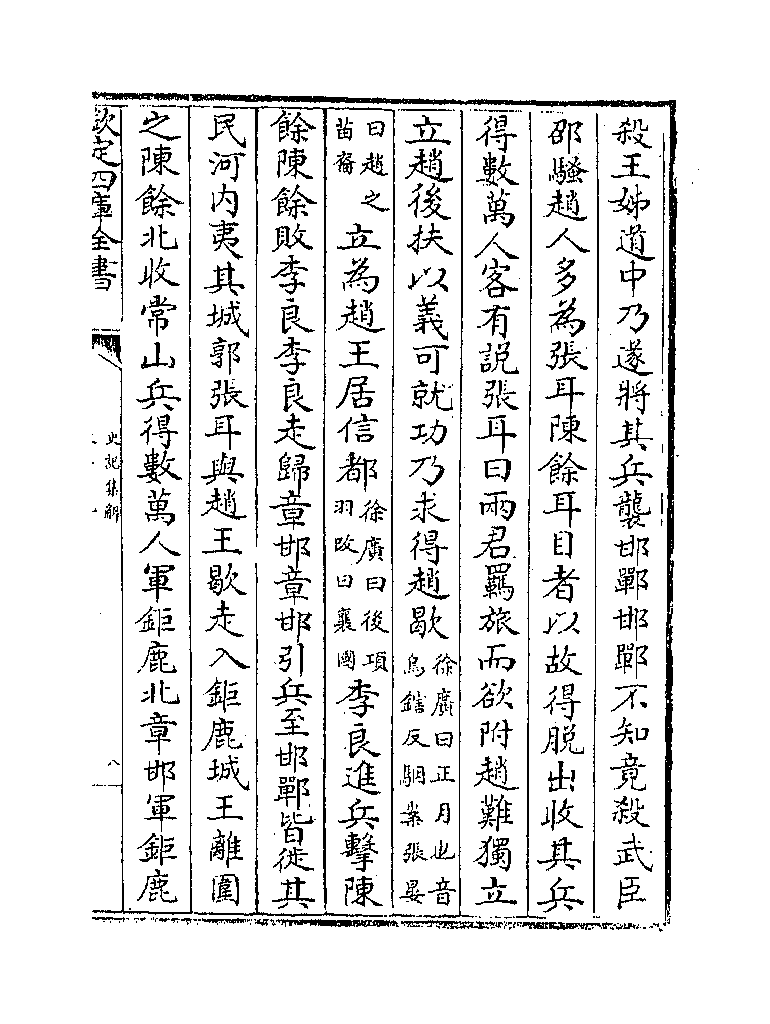 殺王姊道中乃遂將其兵襲邯鄲邯鄲不知竟殺武臣
邵騷趙人多為張耳陳餘耳目者以故得脱出收其兵
得數萬人客有説張耳曰兩君羈旅而欲附趙難獨立
立趙後扶以義可就功乃求得趙歇徐廣曰正月也音烏鎋反駰案張晏
曰趙之苗裔立為趙王居信都徐廣曰後項羽改曰襄國李良進兵擊陳
餘陳餘敗李良李良走歸章邯章邯引兵至邯鄲皆徙其
民河内夷其城郭張耳與趙王歇走入鉅鹿城王離圍
之陳餘北收常山兵得數萬人軍鉅鹿北章邯軍鉅鹿
欽定四庫全書
史記集解
八